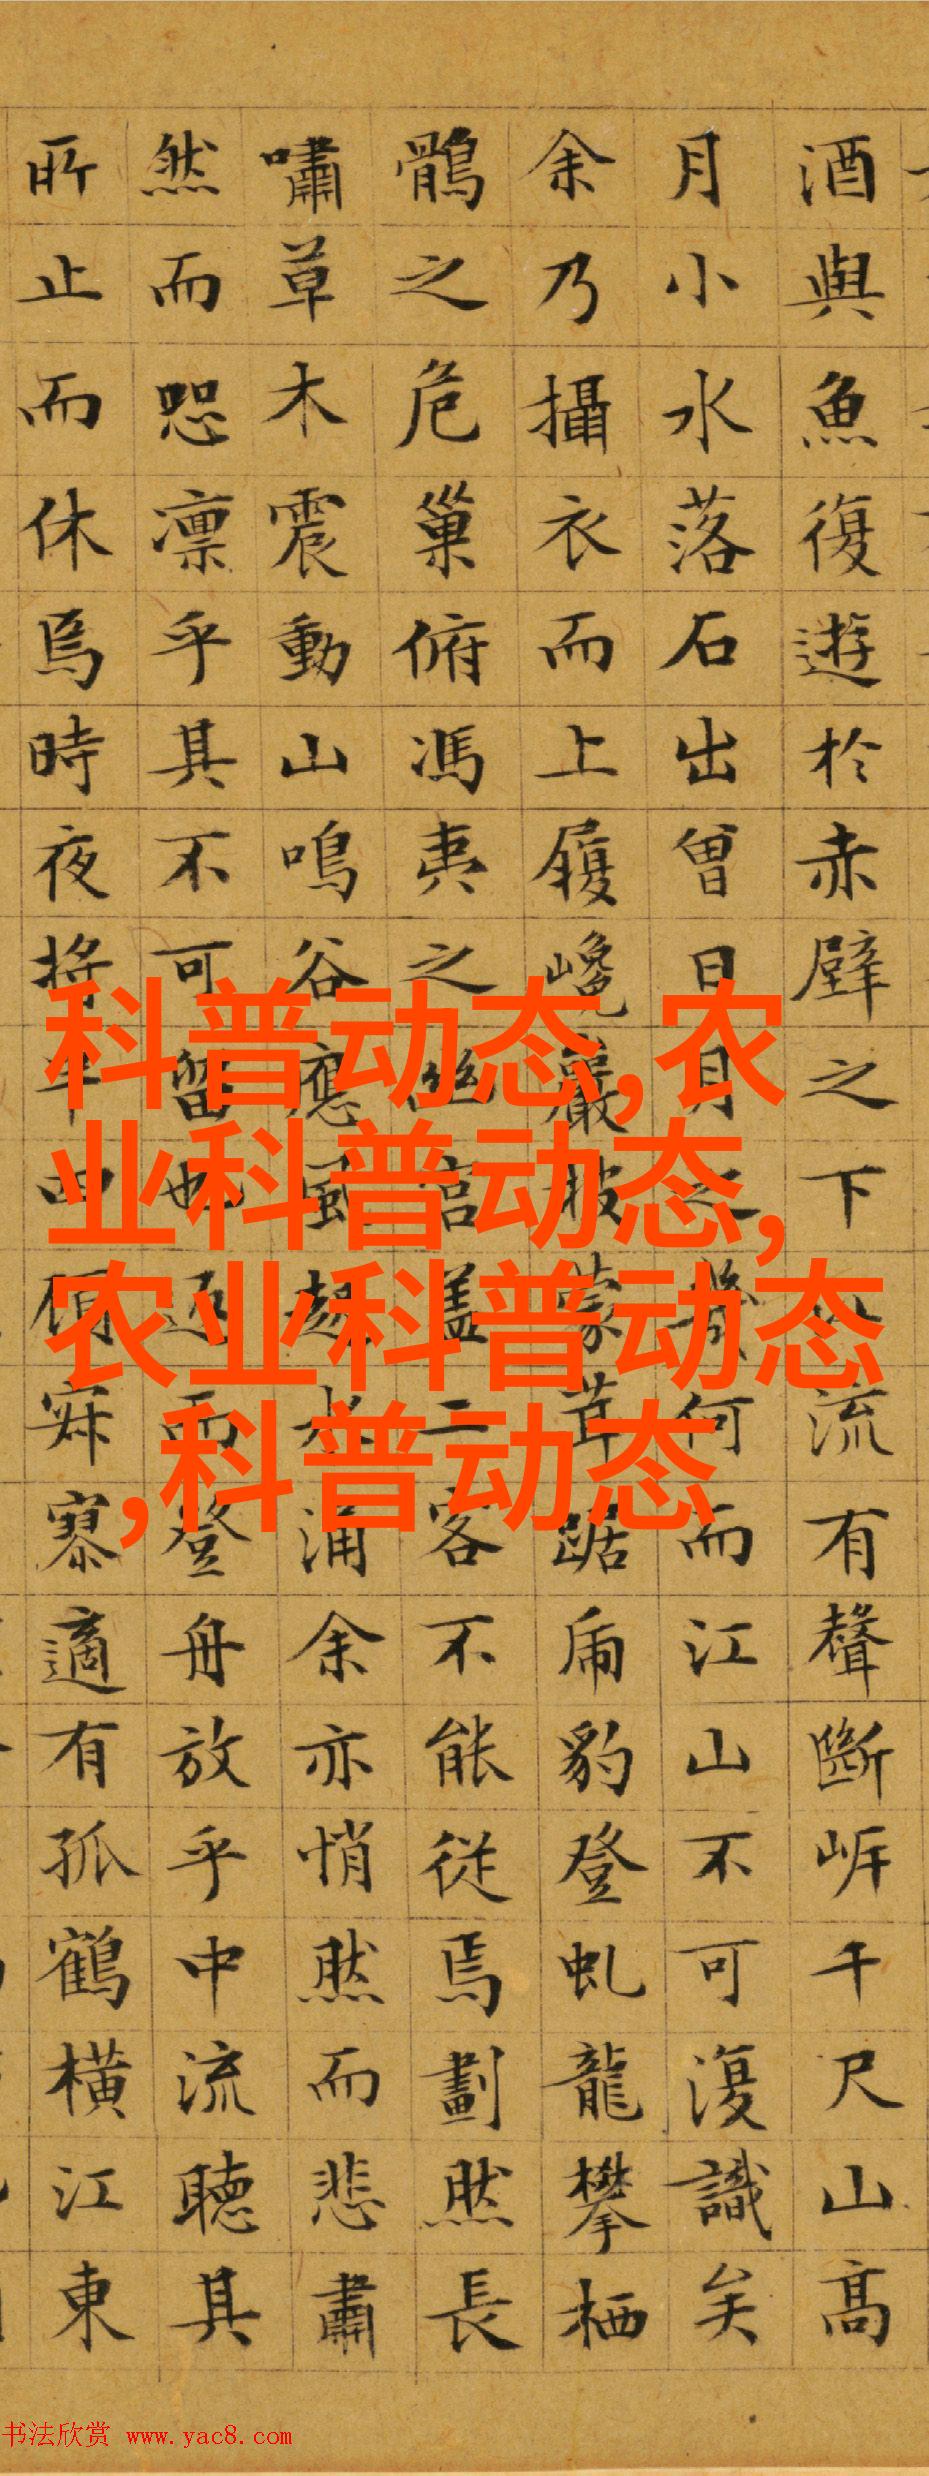 酒與魚復遊於赤壁之下江流有聲斷岸千尺山高
月小水落石出曾日月之幾何而江山不可復識矣
余乃攝衣而上履巉巖披蒙茸踞虎豹登虬龍攀栖
鶻之危巢俯馮夷之幽宮蓋二客不能從焉劃然長
嘯草木震動山鳴谷應風起水涌余亦悄然而悲肅
然而恐凜乎其不可留也返而登舟放乎中流聽其
所止而休焉時夜將半四顧寂寥適有孤鶴橫江東
科普动态,农
业科普动态,
农业科普动态
,科普动态
书法欣赏 www.yac8.com